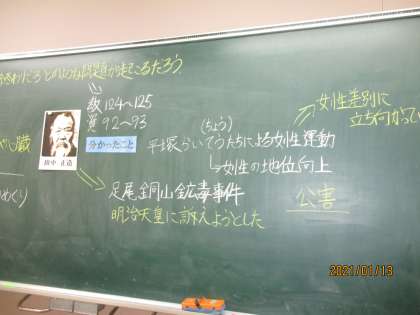 どのような問題が起こるだろう
教124~125
資92~93
分かったこと
(ちょう)
平塚らいてうたちによる女性運動
↳女性の地位向上
女性差別に
立ち向かって
田中正造
心臓
めぐり
足尾銅山鉱毒事件
明治天皇に訴えようとした
公害
2021/01/13